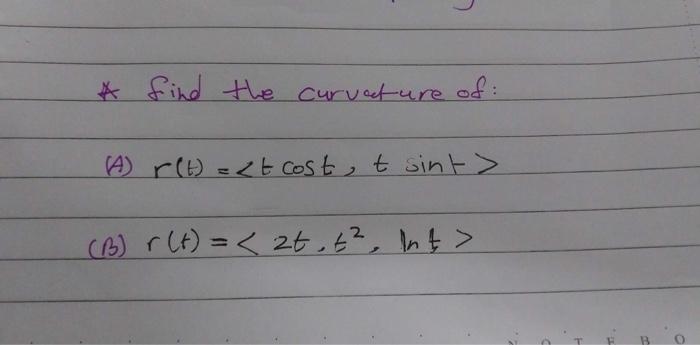 * find the curvature of:
(A) r(t) = <t cost, t sint>
(B) r(t) = < 2t, t², ln t >
N O T E B O